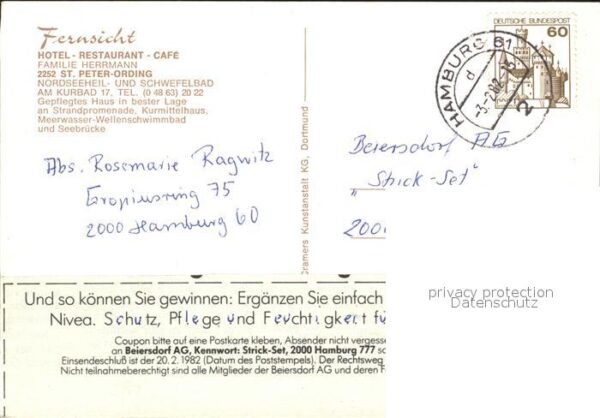 Fernsicht
HOTEL - RESTAURANT - CAFÉ
FAMILIE HERRMANN
2252 ST. PETER-ORDING
NORDSEEHEIL- UND SCHWEFELBAD
AM KURBAD 17, TEL. (0 48 63) 20 22
Gepflegtes Haus in bester Lage
an Strandpromenade, Kurmittelhaus,
Meerwasser-Wellenschwimmbad
und Seebrücke
Abs. Rosemarie Ragwitz
Gropiusring 75
2000 Hamburg 60
Cramers Kunstanstalt KG, Dortmund
DEUTSCHE BUNDESPOST
60
HAMBURG 61
d
-3.-2.82
2
Beiersdorf AG
"Strick-Set"
2000
privacy protection
Datenschutz
Und so können Sie gewinnen: Ergänzen Sie einfach
Nivea. Schutz, Pflege und Feuchtigkeit fü
Coupon bitte auf eine Postkarte kleben, Absender nicht vergesse
an Beiersdorf AG, Kennwort: Strick-Set, 2000 Hamburg 777 sc
Einsendeschluß ist der 20. 2. 1982 (Datum des Poststempels). Der Rechtsweg
Nicht teilnahmeberechtigt sind alle Mitglieder der Beiersdorf AG und deren F